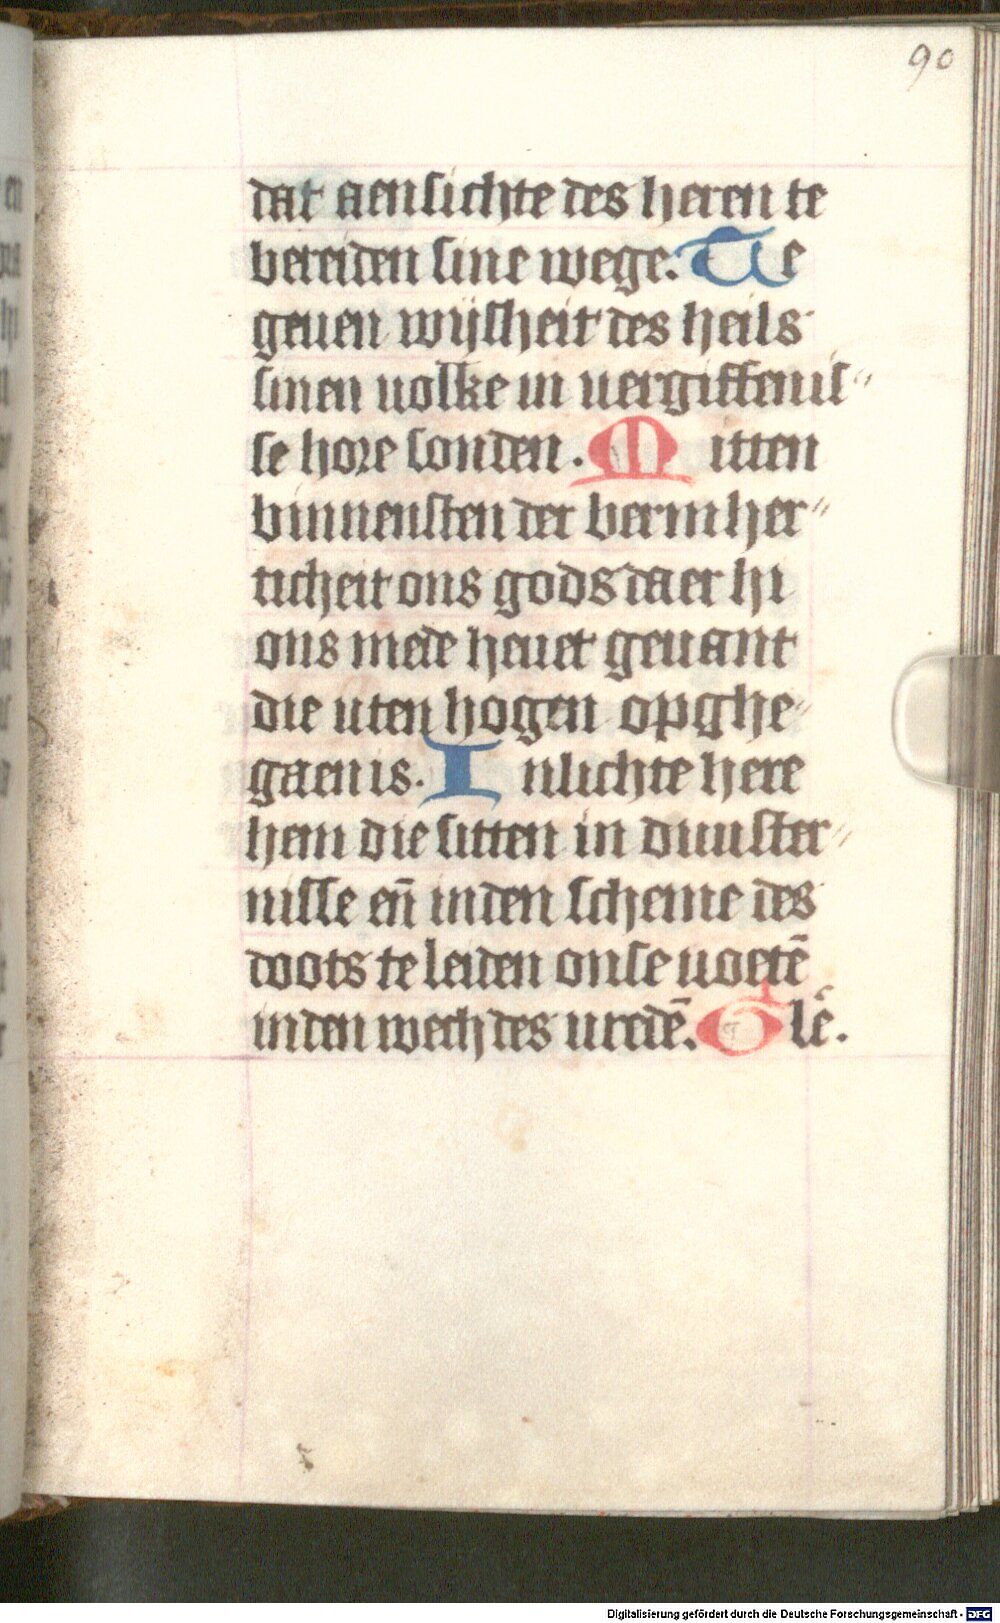 90
dat aensichte des heren te
bereiden sine wege. Te
geuen wijsheit des heils
sinen uolke in uergiffenis⸗
se hore sonden. Mitten
binnensten der bermher⸗
ticheit ons gods daer hi
ons mede heuet geuant
die uten hogen opghe⸗
gaen is. Inlichte here
hem die sitten in duuster⸗
nisse en̄ inden scheme des
doots te leiden onse uoetē
inden wech des uredē. Glē.
Digitalisierung gefördert durch die Deutsche Forschungsgemeinschaft - DFG